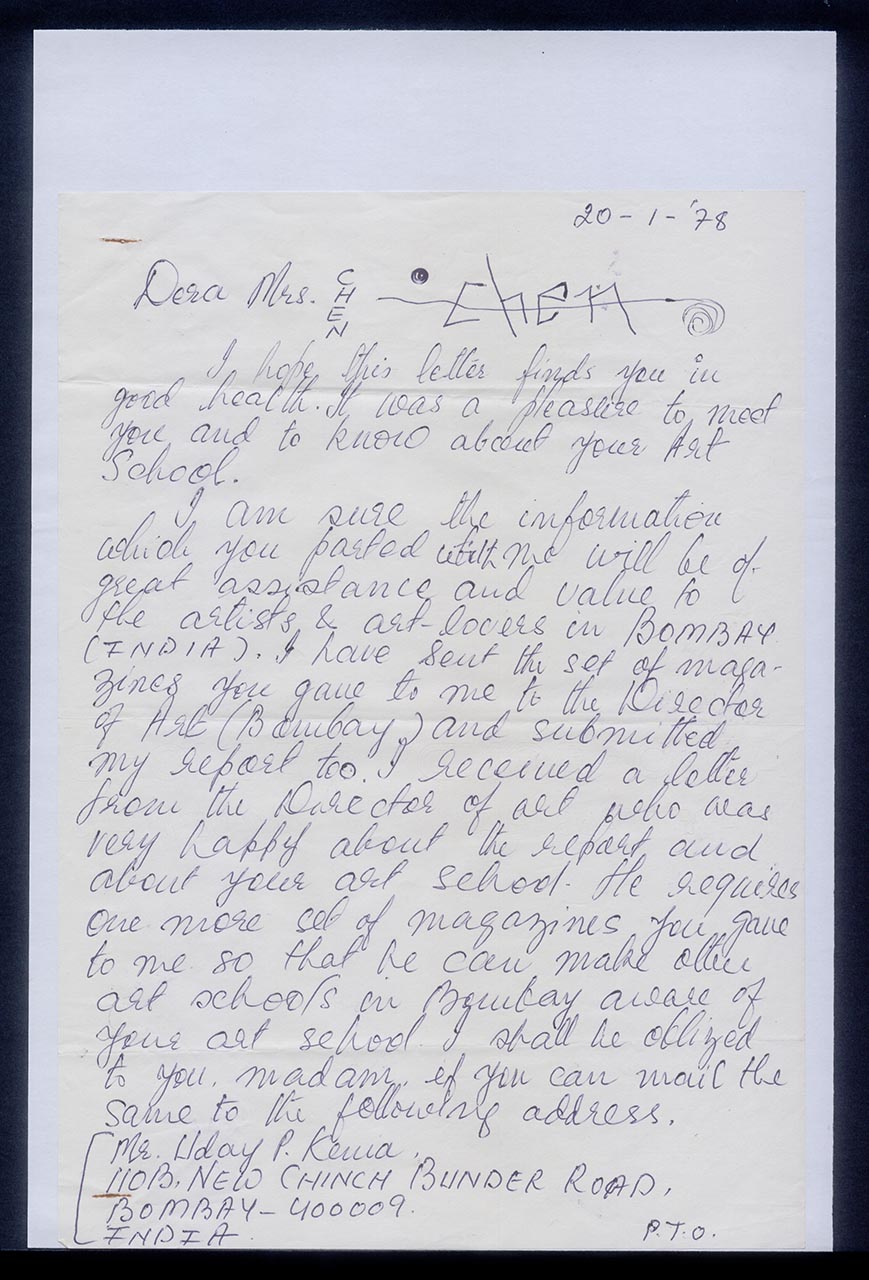 20-1-'78
Dera Mrs. CHEN chen
I hope this letter finds you in
good health. It was a pleasure to meet
you and to know about your Art
School.
I am sure the information
which you parted with me will be of
great assistance and value to
the artists & art-lovers in BOMBAY
(INDIA). I have sent the set of maga-
zines you gave to me to the Director
of Art (Bombay) and submitted
my report too. I received a letter
from the Director of art who was
very happy about the report and
about your art school. He requires
one more set of magazines you gave
to me so that he can make other
art schools in Bombay aware of
your art school. I shall be oblized
to you, madam, if you can mail the
same to the following address.
Mr. Uday P.
110B, NEW CHINCH BUNDER ROAD,
BOMBAY-400009.
INDIA.
P.T.O.